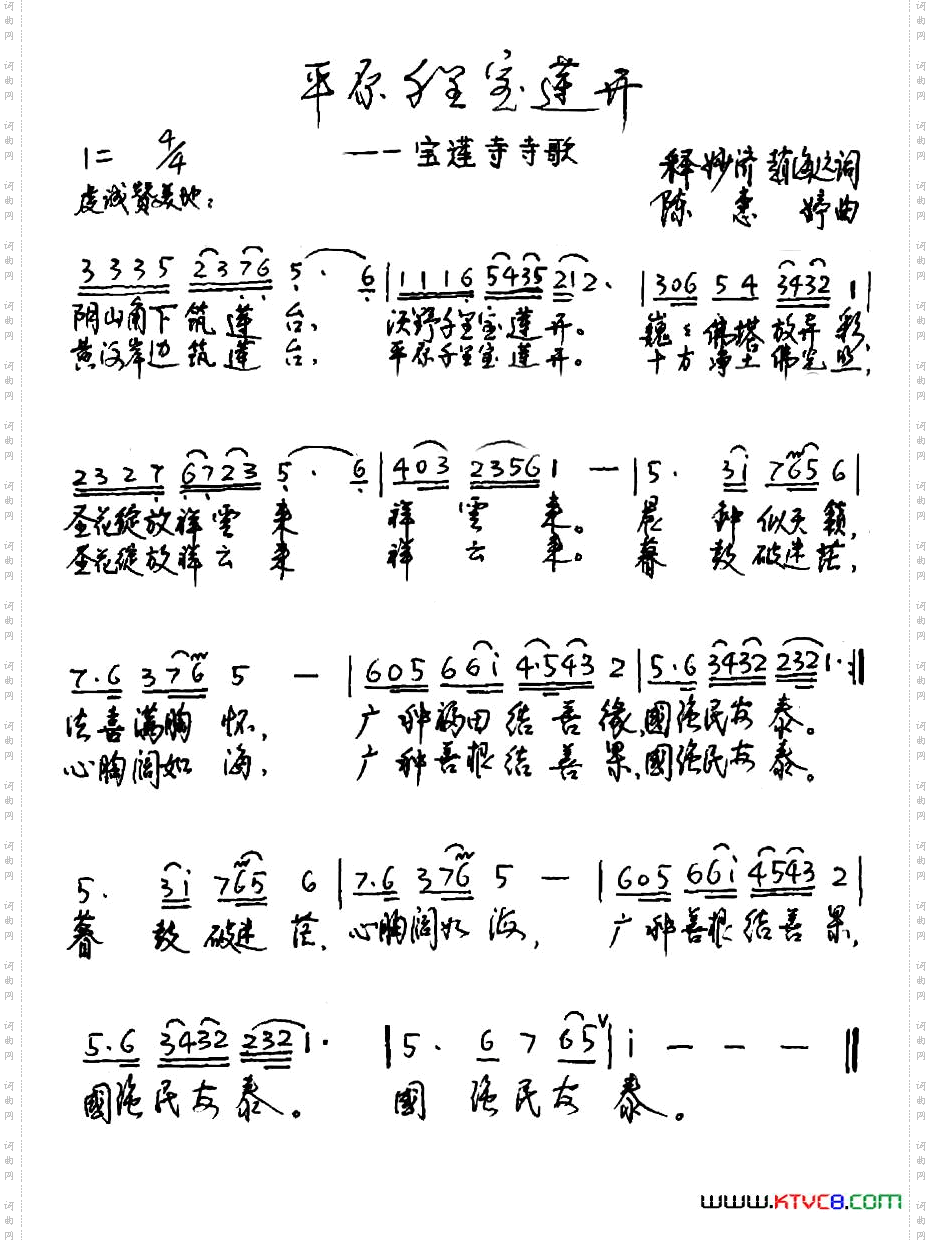 平原千里宝莲开
1= 4/4
——宝莲寺寺歌
释妙济 赵海远词
虔诚赞美地:
陈惠婷曲
3 3 3 5 2 3 7 6 5 · 6 | 1 1 1 6 5 4 3 5 2 1 2 · | 3 0 6 5 4 3 4 3 2 1 |
阴山角下筑莲台, 沃野千里宝莲开。 巍々佛塔放异彩,
黄河岸边筑莲台, 平原千里宝莲开。 十方净土佛光照,
2 3 2 7 6 7 2 3 5 · 6 | 4 0 3 2 3 5 6 1 — | 5 · 3 i 7 6 5 6 |
圣花绽放祥雲来 祥雲来。 晨钟似天籁,
圣花绽放祥云来 祥云来。 暮鼓破迷茫,
7 · 6 3 7 6 5 — | 6 0 5 6 6 i 4 · 5 4 3 2 | 5 · 6 3 4 3 2 2 3 2 1 · :||
法喜满胸怀, 广种福田结善缘,國强民安泰。
心胸阔如海, 广种善根结善果,國强民安泰。
5 · 3 i 7 6 5 6 | 7 · 6 3 7 6 5 — | 6 0 5 6 6 i 4 5 4 3 2 |
暮鼓破迷茫, 心胸阔如海, 广种善根结善果,
5 · 6 3 4 3 2 2 3 2 1 · | 5 · 6 7 6 5 V | i — — — ||
國强民安泰。 國强民安泰。
www.KTVC8.com
词曲网